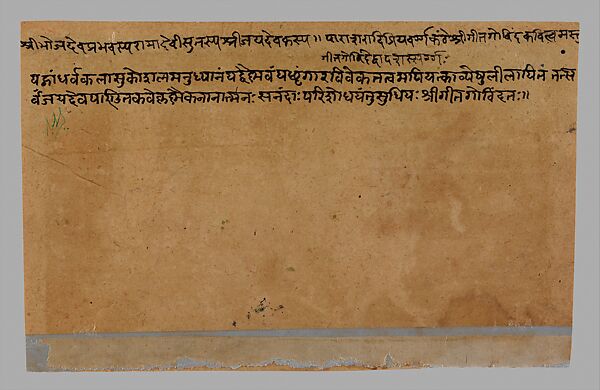 श्रीभोजदेवप्रभवस्य रामादेवीसुतस्य श्रीजयदेवकस्य॥ पाराशरादिप्रियवर्गकंठे श्रीगीतगोविंदकवित्वमस्तु
गीतगोविंदे द्वादशस्सर्गः
यद्गांधर्वकलासुकौशलमनुध्यानं यद्वैष्णवं यच्छृंगारविवेकतत्वमपि यत्काव्येषु लीलायितं तत्स
र्वं जयदेवपंडितकवेः कृष्णैकतानात्मनः सानंदाः परिशोधयंतु सुधियः श्रीगीतगोविंदतः॥